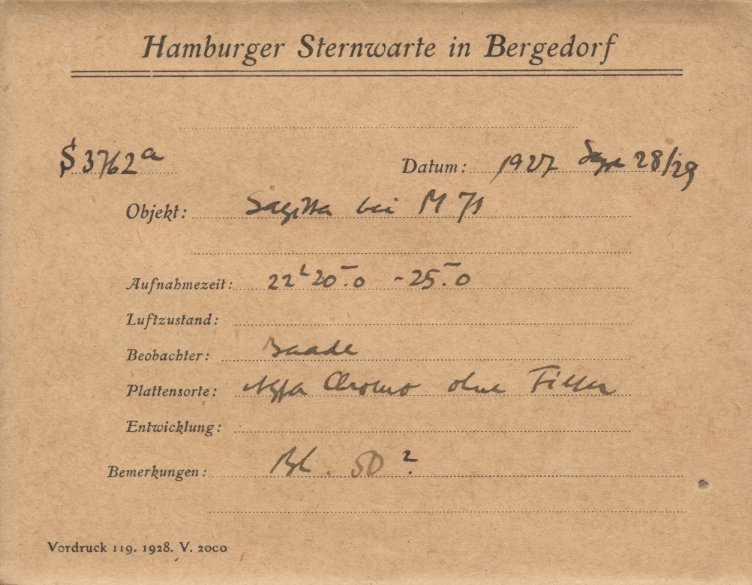 Hamburger Sternwarte in Bergedorf
S 3762a Datum: 1927 Sept 28/29
Objekt: Sagitta bei M 71
Aufnahmezeit: 22h 20m.0 - 25m.0
Luftzustand:
Beobachter: Baade
Plattensorte: Agfa Chromo ohne Filter
Entwicklung:
Bemerkungen: Bl. 50 ?
Vordruck 119. 1928. V. 2000